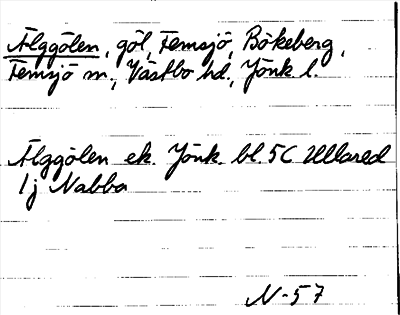 Älggölen, göl, Femsjö, Bökeberg,
Femsjö sn., Västbo hd., Jönk. l.
Älggölen ek. Jönk. bl. 5C Ullared
1j Nabba
N-57